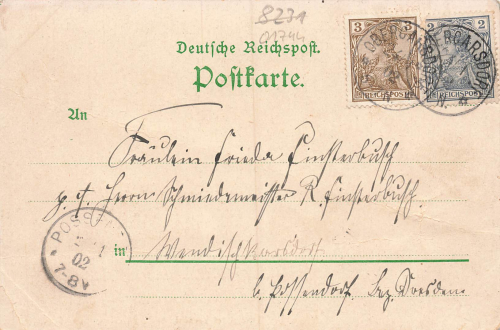 8231
01744
Deutsche Reichspost.
Postkarte.
3 3
REICHSPOST
2 2
REICHSPOST
An
Fräulein Frieda Finsterbusch
p. A. Herrn Schmiedemeister R. Finsterbusch
in Wendischkarsdorf
b. Possendorf. Bez. Dresden
POSSE
02
7-8V